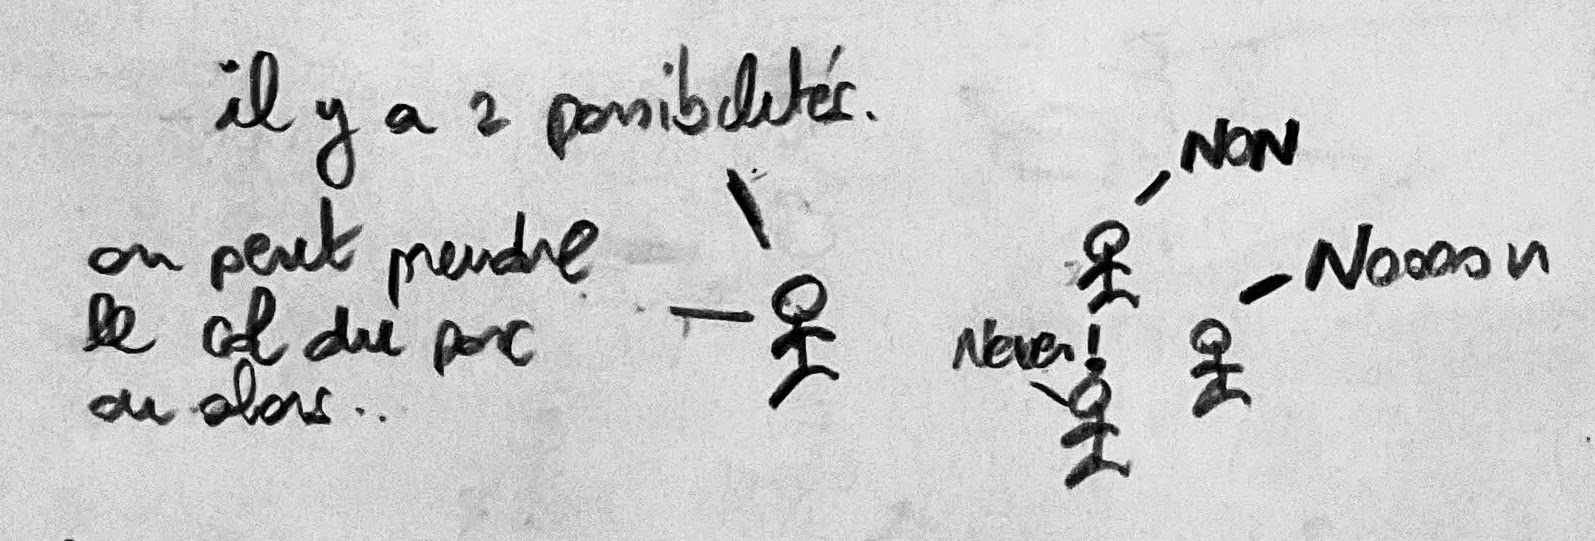 il y a 2 possibilités.
on peut prendre
le col du porc
ou alors..
NON
Nooooon
Never!